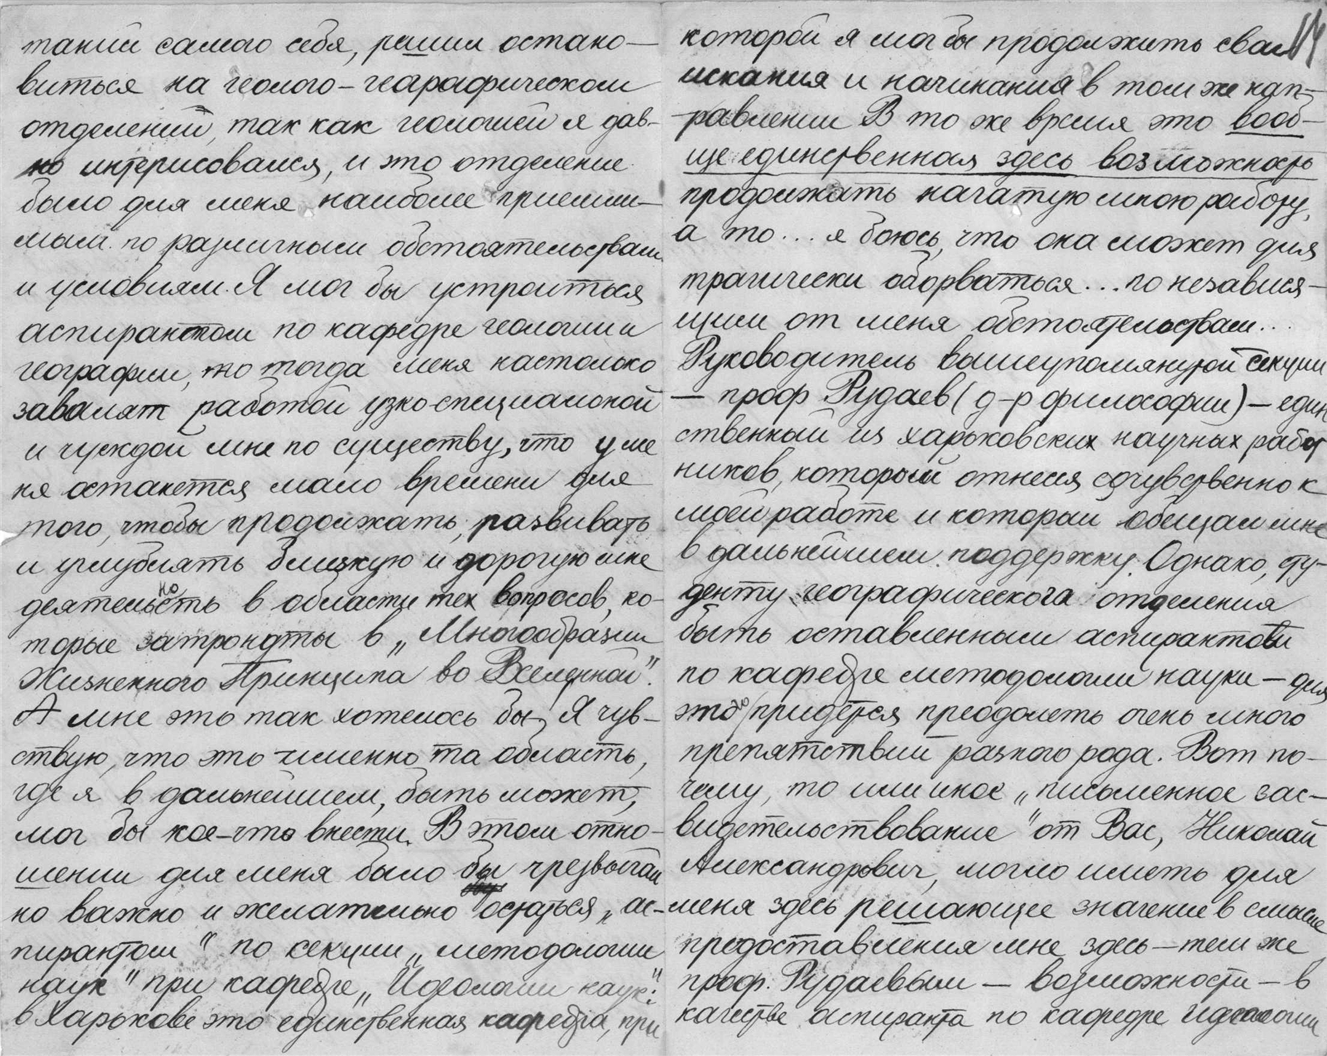 таний самого себя, решил остано-
виться на геолого-географическом
отделении, так как геологией я дав-
но интересовался, и это отделение
было для меня наиболее приемли-
мым по различным обстоятельствам
и условиям. Я мог бы устроиться
аспирантом по кафедре геологии и
географии, но тогда меня настолько
завалят работой узко-специальной
и чуждой мне по существу, что у ме
ня останется мало времени для
того, чтобы продолжать, развивать
и углублять близкую и дорогую мне
деятельность в области тех вопросов, ко-
торые затронуты в „Многообразии
Жизненного Принципа во Вселенной".
А мне это так хотелось бы! Я чув-
ствую, что это именно та область,
где я в дальнейшем, быть может,
мог бы кое-что внести. В этом отно-
шении для меня было бы чрезвычай
но важно и желательно остаться „ас-
пирантом" по секции „методологии
наук" при кафедре „Идеологии наук":
в Харькове это единственная кафедра, при
14
которой я мог бы продолжить свои
искания и начинания в том же нап-
равлении В то же время это вооб-
ще единственная здесь возможность
продолжать начатую мною работу,
а то... я боюсь, что она может для
трагически оборваться... по независя-
щим от меня обстоятельствам...
Руководитель вышеупомянутой секции
— проф Рудаев (д-р философии) — един
ственный из харьковских научных работ
ников, который отнесся сочувственно к
моей работе и который обещал мне
в дальнейшем поддержку. Однако, сту-
денту географического отделения
быть оставленным аспирантом
по кафедре методологии науки — для
этого придется преодолеть очень много
препятствий разного рода. Вот по-
чему, то или иное „письменное зас-
видетельствование" от Вас, Николай
Александрович, могло иметь для
меня здесь решающее значение в смысле
предоставления мне здесь — тем же
проф. Рудаевым — возможности — в
качестве аспиранта по кафедре идеологии